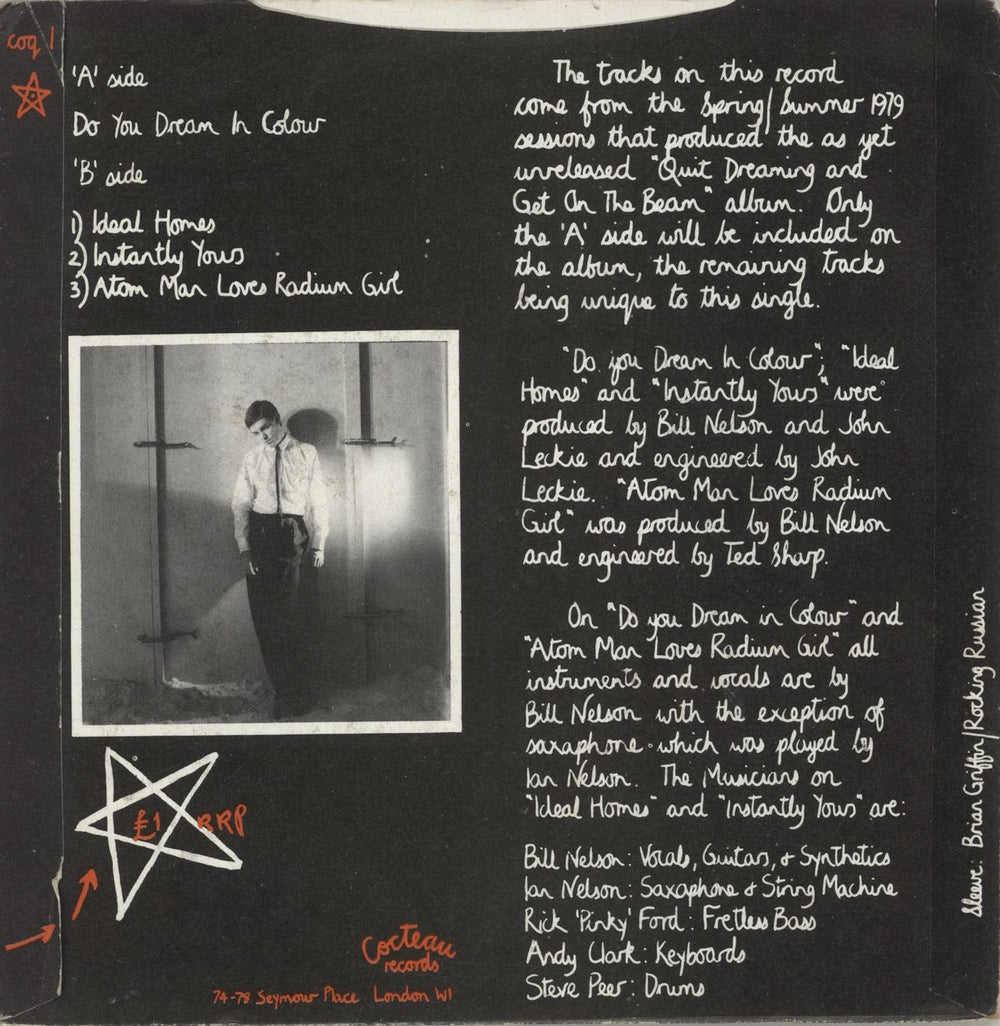 coq 1
'A' side
Do You Dream In Colour
'B' side
1) Ideal Homes
2) Instantly Yours
3) Atom Man Loves Radium Girl
The tracks on this record
come from the Spring/Summer 1979
sessions that produced the as yet
unreleased "Quit Dreaming and
Get On The Beam" album. Only
the 'A' side will be included on
the album, the remaining tracks
being unique to this single.
"Do you Dream In Colour"; "Ideal
Homes" and "Instantly Yours" were
produced by Bill Nelson and John
Leckie and engineered by John
Leckie. "Atom Man Loves Radium
Girl" was produced by Bill Nelson
and engineered by Ted Sharp.
On "Do you Dream in Colour" and
"Atom Man Loves Radium Girl" all
instruments and vocals are by
Bill Nelson with the exception of
saxaphone which was played by
Ian Nelson. The Musicians on
"Ideal Homes" and "Instantly Yours" are:
Bill Nelson: Vocals, Guitars, & Synthetics
Ian Nelson: Saxaphone & String Machine
Rick 'Pinky' Ford: Fretless Bass
Andy Clark: Keyboards
Steve Peer: Drums
£1 RRP
Cocteau
records
74-78 Seymour Place London W1
Sleeve: Brian Griffin/Rocking Russian